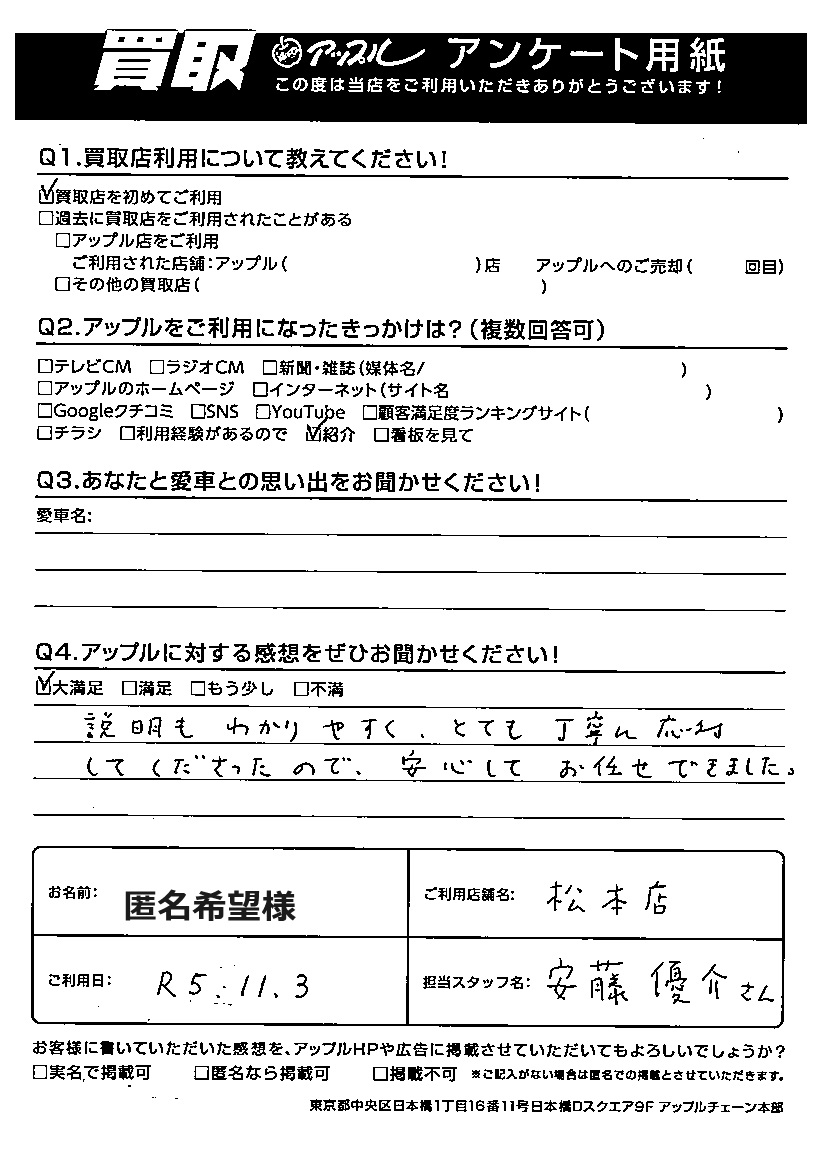 買取 アップル アンケート用紙
この度は当店をご利用いただきありがとうございます！
Q1.買取店利用について教えてください！
☑買取店を初めてご利用
□過去に買取店をご利用されたことがある
□アップル店をご利用
ご利用された店舗：アップル（ ）店 アップルへのご売却（ 回目）
□その他の買取店（ ）
Q2.アップルをご利用になったきっかけは？（複数回答可）
□テレビCM □ラジオCM □新聞・雑誌（媒体名/ ）
□アップルのホームページ □インターネット（サイト名 ）
□Googleクチコミ □SNS □YouTube □顧客満足度ランキングサイト（ ）
□チラシ □利用経験があるので ☑紹介 □看板を見て
Q3.あなたと愛車との思い出をお聞かせください！
愛車名：
Q4.アップルに対する感想をぜひお聞かせください！
☑大満足 □満足 □もう少し □不満
説明もわかりやすく、とても丁寧に応対
してくださったので、安心してお任せできました。
お名前： 匿名希望様 ご利用店舗名： 松本店
ご利用日： R5.11.3 担当スタッフ名： 安藤優介さん
お客様に書いていただいた感想を、アップルHPや広告に掲載させていただいてもよろしいでしょうか？
□実名で掲載可 □匿名なら掲載可 □掲載不可 ※ご記入がない場合は匿名での掲載とさせていただきます。
東京都中央区日本橋1丁目16番11号日本橋Dスクエア9F アップルチェーン本部